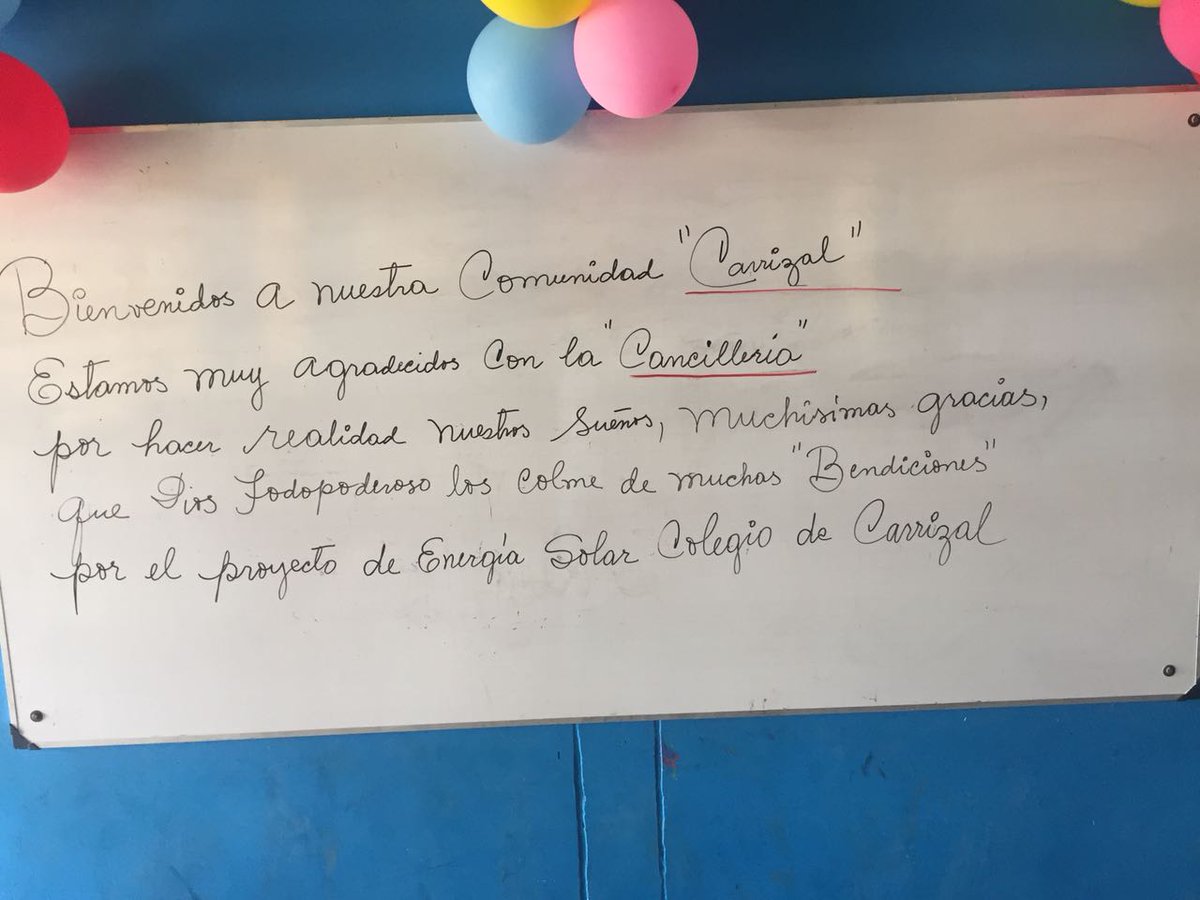 Bienvenidos a nuestra Comunidad "Carrizal"
Estamos muy agradecidos con la "Cancillería"
por hacer realidad nuestros sueños, muchisimas gracias,
que Dios Todopoderoso los colme de muchas "Bendiciones"
por el proyecto de Energía Solar Colegio de Carrizal